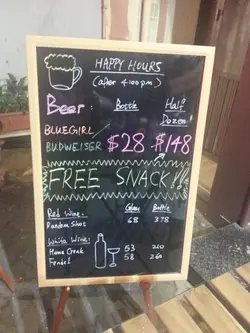 HAPPY HOURS
(after 4:00 pm)
Beer: Bottle Half Dozen
BLUEGIRL/
BUDWEISER $28 $148
FREE SNACK!!
Red Wine: Glass Bottle
Random Shot 68 378
White Wine:
Home Creek 53 210
Fendel 58 260